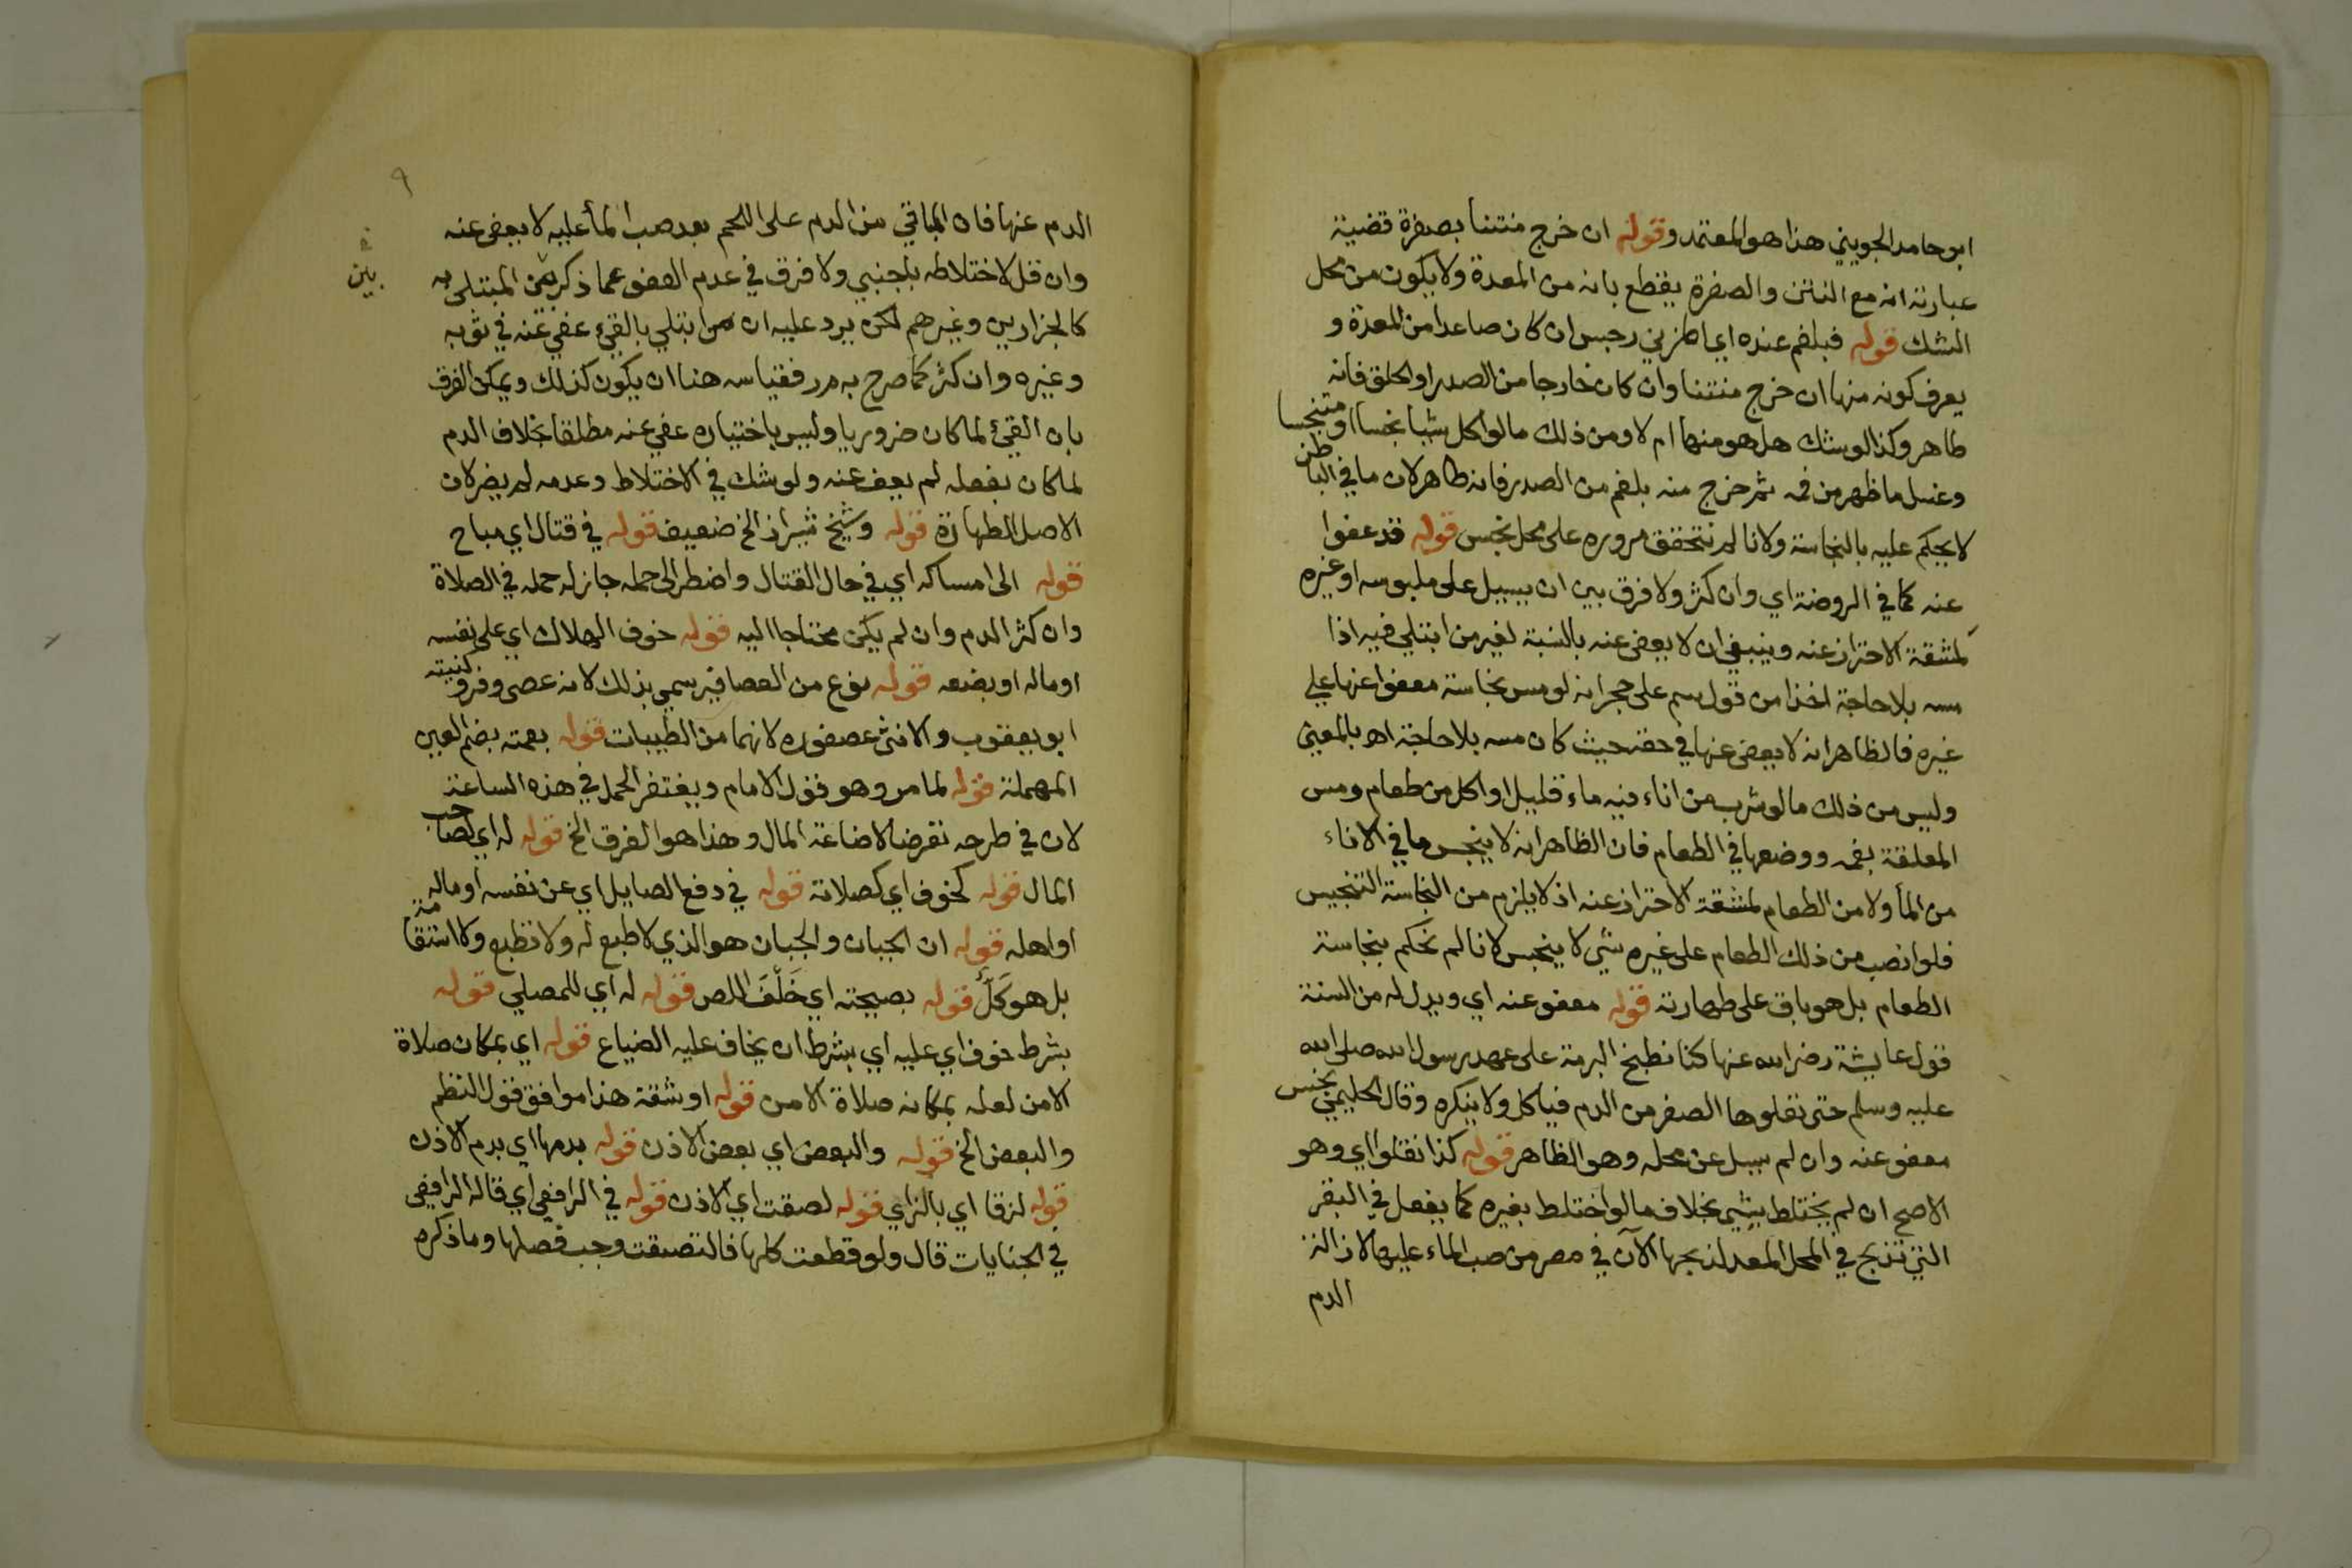 ابو حامد الجويني هذا هو المعتمد وقوله ان خرج منتنا بصفرة قضية
عبارته انه مع النتن والصفرة يقطع بانه من المعدة ولا يكون من محل
الشك قوله فبلغم عنده اي المزني رجس ان كان صاعدا من المعدة و
يعرف كونه منها ان خرج منتنا وان كان خارجا من الصدر او الحلق فانه
طاهر وكذا لو شك هل هو منها ام لا ومن ذلك ما لو اكل شيا نجسا او متنجسا
وغسل ما ظهر من فمه ثم خرج منه بلغم من الصدر فانه طاهر لان ما في الباطن
لا يحكم عليه بالنجاسة ولانا لم نتحقق مروره على محل نجس قوله قد عفوا
عنه كما في الروضة اي وان كثر ولا فرق بين ان يسيل على ملبوسه او غيره
لمشقة الاحتراز عنه وينبغي ان لا يعفى عنه بالنسبة لغير من ابتلي فيه اذا
مسه بلا حاجة اخذا من قول سم على حجر انه لو مس نجاسة معفوا عنها على
غيره فالظاهر انه لا يعفى عنها في حقه حيث كان مسه بلا حاجة اه بالمعنى
وليس من ذلك ما لو شرب من اناء فيه ماء قليل او اكل من طعام ومس
المعلقة بفمه ووضعها في الطعام فان الظاهر انه لا ينجس ما في الاناء
من الما ولا من الطعام لمشقة الاحتراز عنه اذ لا يلزم من النجاسة التنجيس
فلو انصب من ذلك الطعام على غيره شي لا ينجس لانا لم نحكم بنجاسة
الطعام بل هو باق على طهارته قوله معفو عنه اي ويدل له من السنة
قول عايشة رضي الله عنها كنا نطبخ البرمة على عهد رسول الله صلى الله
عليه وسلم حتى تعلوها الصفر من الدم فياكل ولا ينكره وقال الحليمي نجس
معفو عنه وان لم يسل عن محله وهو الظاهر قوله كذا نقلوا اي وهو
الاصح ان لم يختلط بشي بخلاف ما لو اختلط بغيره كما يفعل في البقر
التي تذبح في المحل المعد لذبحها الآن في مصر من صب الماء عليها لازالة
الدم
٩
الدم عنها فان الباقي من الدم على اللحم بعد صب الما عليه لا يعفى عنه
وان قل لاختلاطه باجنبي ولا فرق في عدم العفو عما ذكر بين المبتلى به
بين
كالجزارين وغيرهم لكن يرد عليه ان من ابتلي بالقيء عفي عنه في ثوبه
وغيره وان كثر كما صرح به م ر فقياسه هنا ان يكون كذلك ويمكن الفرق
بان القيء لما كان ضروريا وليس باختياره عفي عنه مطلقا بخلاف الدم
لما كان بفعله لم يعف عنه ولو شك في الاختلاط وعدمه لم يضر لان
الاصل الطهارة قوله وشيخ شيراز الخ ضعيف قوله في قتال اي مباح
قوله الى امساكه اي في حال القتال واضطر الى حمله جاز له حمله في الصلاة
وان كثر الدم وان لم يكن محتاجا اليه قوله خوف الهلاك اي على نفسه
او ماله او بضعه قوله نوع من العصافير سمي بذلك لانه عصى وفر وكنيته
ابو يعقوب والانثى عصفوره لانهما من الطيبات قوله بعمته بضم العين
المهملة قوله لما مر وهو قول الامام ويغتفر الحمل في هذه الساعة
لان في طرحه تعرضا لاضاعة المال وهذا هو الفرق الخ قوله له اي لصاحب
المال قوله كخوف اي كصلاته قوله في دفع الصايل اي عن نفسه او ماله
او اهله قوله ان الجبان والجبان هو الذي لا طبع له ولا تطبع ولا استقامة
بل هو كَلٌّ قوله بصيحته اي خَلَّفَ اللص قوله له اي للمصلي قوله
بشرط خوف اي عليه اي بشرط ان يخاف عليه الضياع قوله اي بمكان صلاة
الامن لعله بمكانه صلاة الامن قوله او شقة هذا موافق قول النظم
والبعض الخ قوله والبعض اي بعض الاذن قوله بدمها اي بدم الاذن
قوله لزقا اي بالزاي قوله لصقت اي الاذن قوله في الرافعي اي قاله الرافعي
في الجنايات قال ولو قطعت كلها فالتصقت وجب فصلها وما ذكره